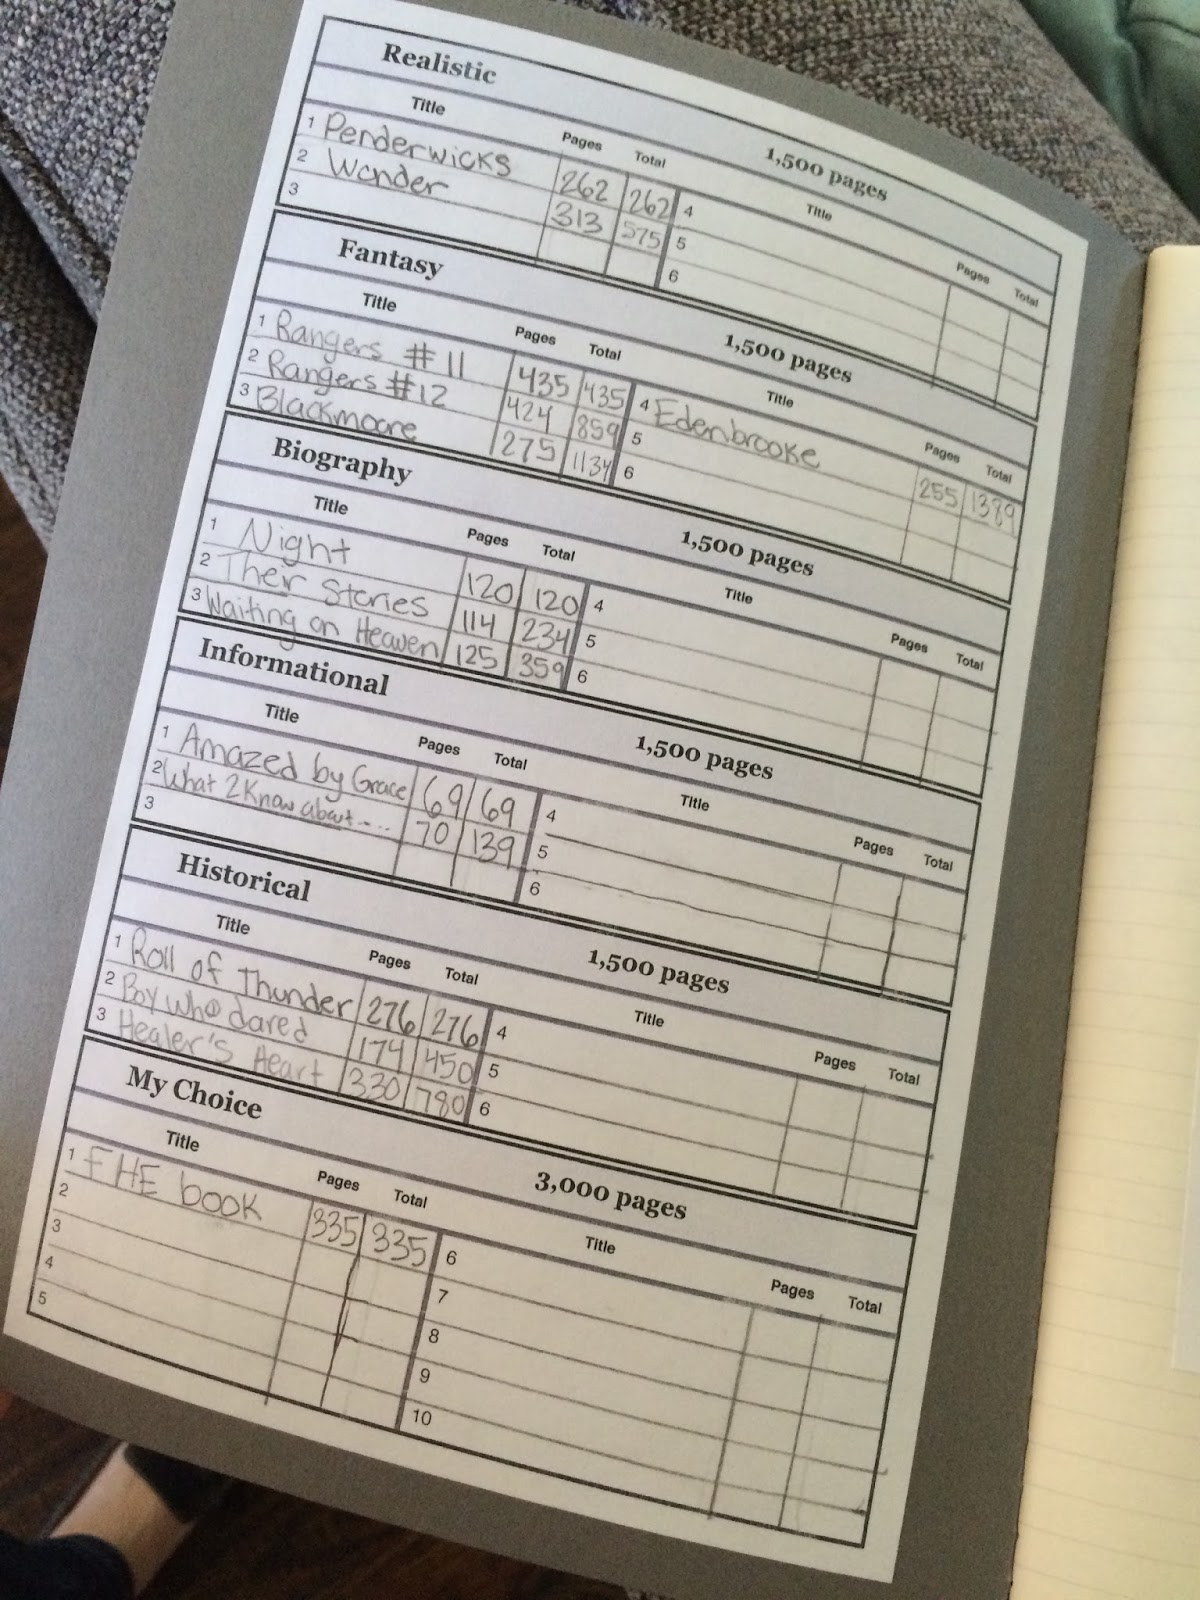 Realistic 1,500 pages
Title Pages Total Title Pages Total
1 Penderwicks 262 262 4
2 Wonder 313 575 5
3 6
Fantasy 1,500 pages
Title Pages Total Title Pages Total
1 Rangers #11 435 435 4 Edenbrooke 255 1389
2 Rangers #12 424 859 5
3 Blackmoore 275 1134 6
Biography 1,500 pages
Title Pages Total Title Pages Total
1 Night 120 120 4
2 Their Stories 114 234 5
3 Waiting on Heaven 125 359 6
Informational 1,500 pages
Title Pages Total Title Pages Total
1 Amazed by Grace 69 69 4
2 What 2 Know about.... 70 139 5
3 6
Historical 1,500 pages
Title Pages Total Title Pages Total
1 Roll of Thunder 276 276 4
2 Boy who dared 174 450 5
3 Healer's Heart 330 780 6
My Choice 3,000 pages
Title Pages Total Title Pages Total
1 FHE book 335 335 6
2 7
3 8
4 9
5 10